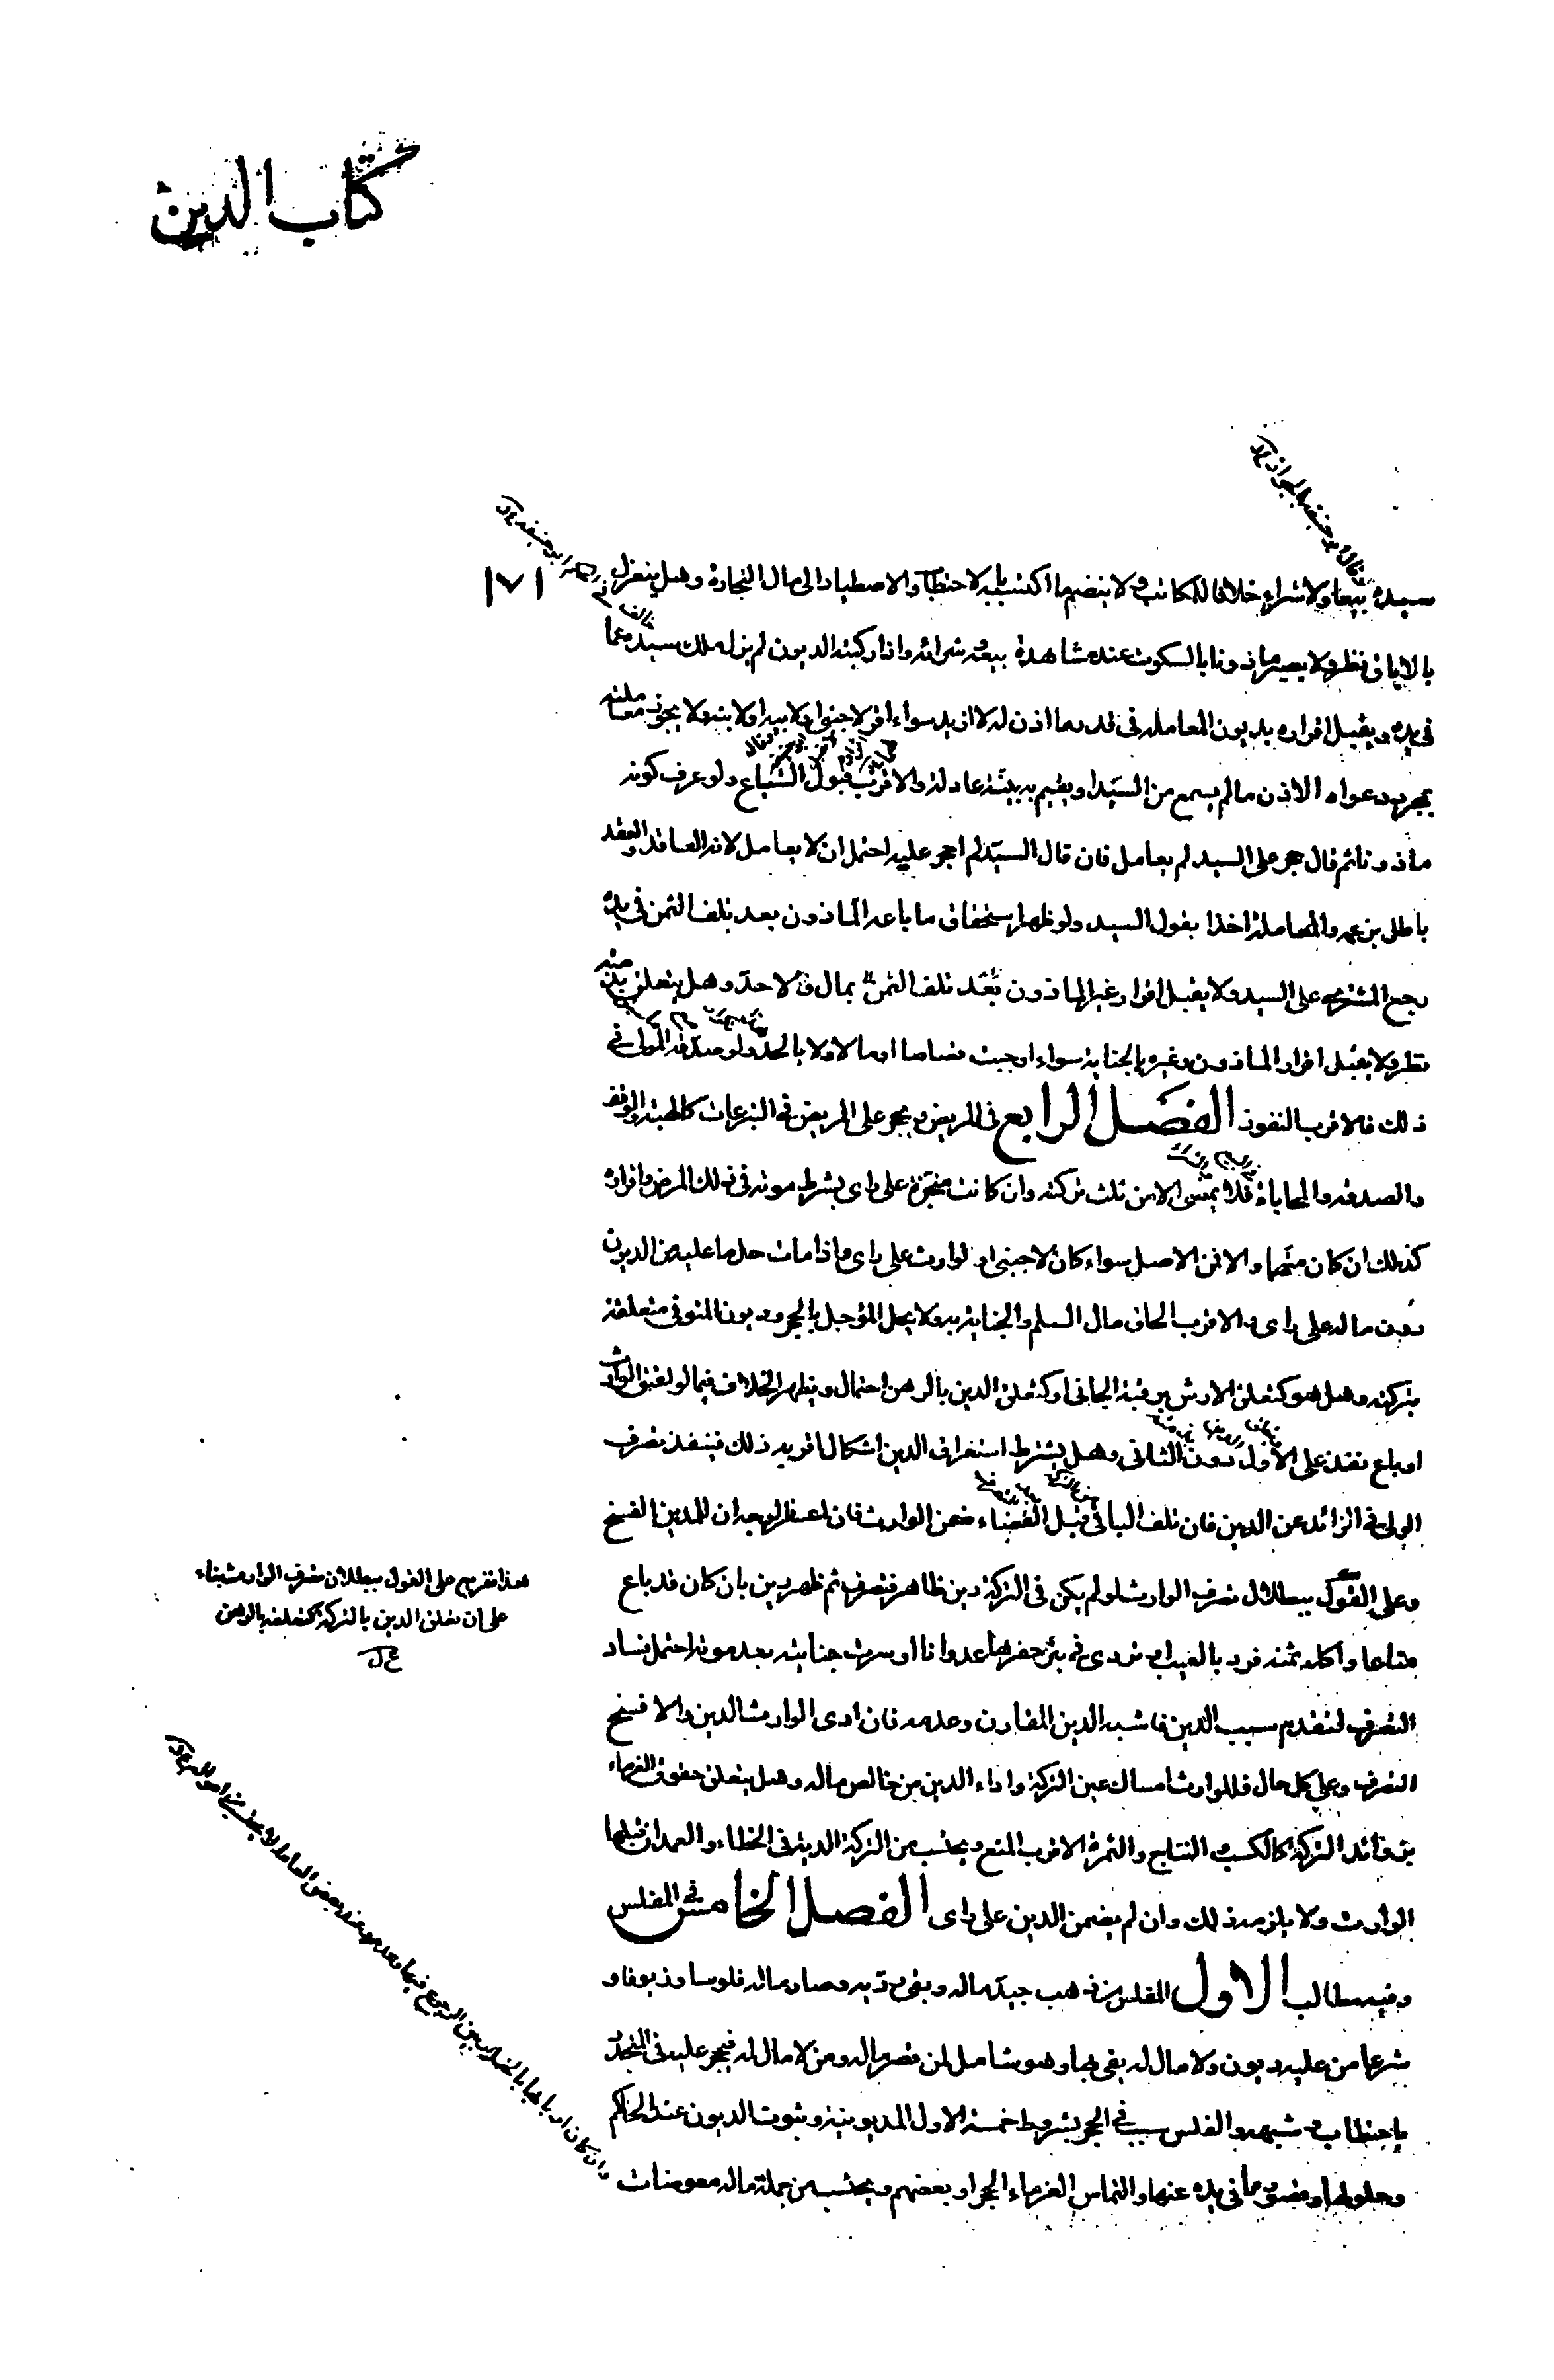 كتاب الدين
١٧١
سيده بيعا ولا شراء خلافا للمكاتب ولا ينضم ما اكتسبه بالاحتطاب والاصطياد الى مال التجارة وهل ينعزل
بالاباق نظر ولا يصير ماذونا بالسكوت عند مشاهدة بيعه وشرائه واذا ركبته الديون لم يزل ملك سيده عما
في يده ويقبل اقراره بديون المعاملة في قدر ما اذن له لا ازيد سواء اقر لاجنبي او لابيه او لابنه ولا يجوز معاملته
بمجرد دعواه الاذن ما لم يسمع من السيد او يقيم به بينة عادلة والاقرب قبول الشياع ولو عرف كونه
ماذونا ثم قال حجر على السيد لم يعامل فان قال السيد لم احجر عليه احتمل ان لا يعامل لانه العاقد والعقد
باطل بزعمه والمعاملة اخذا بقول السيد ولو ظهر استحقاق ما باعه الماذون بعد تلف الثمن في يده
رجع المشتري على السيد ولا يقبل اقرار غير الماذون بمال ولا حد وهل يتعلق بذمته
نظر ولا يقبل اقرار الماذون وغيره بالجناية سواء اوجبت قصاصا او مالا ولا بالحد ولو صدقه المولى في
ذلك فالاقرب النفوذ الفصل الرابع في المريض ويحجر على المريض في التبرعات كالهبة والوقف
والصدقة والمحاباة فلا يمضى الا من ثلث تركته وان كانت منجزة على راى بشرط موته في ذلك المرض واقراره
كذلك ان كان متهما والا فمن الاصل سواء كان لاجنبي او لوارث على راى واذا مات حل ما عليه من الديون
دون ماله على راى والاقرب الحاق مال السلم والجناية به ولا يحل المؤجل بالحجر وديون المتوفى متعلقة
بتركته وهل هو كتعلق الارش برقبة الجاني او كتعلق الدين بالرهن احتمال ويظهر الخلاف فيما لو اعتق الوارث
او باع نفذ على الاول دون الثاني وهل يشترط استغراق الدين اشكال اقربه ذلك فينفذ تصرف
الولي في الزائد عن الدين فان تلف الباقي قبل القضاء ضمن الوارث فان اعسر فالوجه ان للمدين الفسخ
وعلى القول ببطلان تصرف الوارث لو لم يكن في التركة دين ظاهر فتصرف ثم ظهر دين بان كان قد باع
متاعا واكل ثمنه فرد بالعيب او تردى في بئر حفرها عدوانا او سرت جنايته بعد موته احتمل فساد
التصرف لتقدم سبب الدين فاشبه الدين المقارن وعدمه فان ادى الوارث الدين والا فسخ
التصرف وعلى كل حال فللوارث امساك عين التركة واداء الدين من خالص ماله وهل يتعلق حقوق الغرماء
بزوائد التركة كالكسب والنتاج والثمرة الاقرب المنع ويحتسب من التركة الدية في الخطاء والعمد ان قبلها
الوارث ولا يلزمه ذلك وان لم يضمن الدين على راى الفصل الخامس في المفلس
وفيه مطالب الاول المفلس من ذهب جيد ماله وبقي رديه وصار ماله فلوسا وزيوفا و
شرعا من عليه ديون ولا مال له يفي بها وهو شامل لمن قصر ماله ومن لا مال له فيحجر عليه في المتجدد
باحتطاب وشبهه والفلس سبب في الحجر بشروط خمسة الاول المديونية وثبوت الديون عند الحاكم
وحلولها وقصور ما في يده عنها والتماس الغرماء الحجر او بعضهم ويحتسب من جملة ماله معوضات
هذا تفريع على القول ببطلان تصرف الوارث بناء
على ان تعلق الدين بالتركة كتعلقه بالرهن